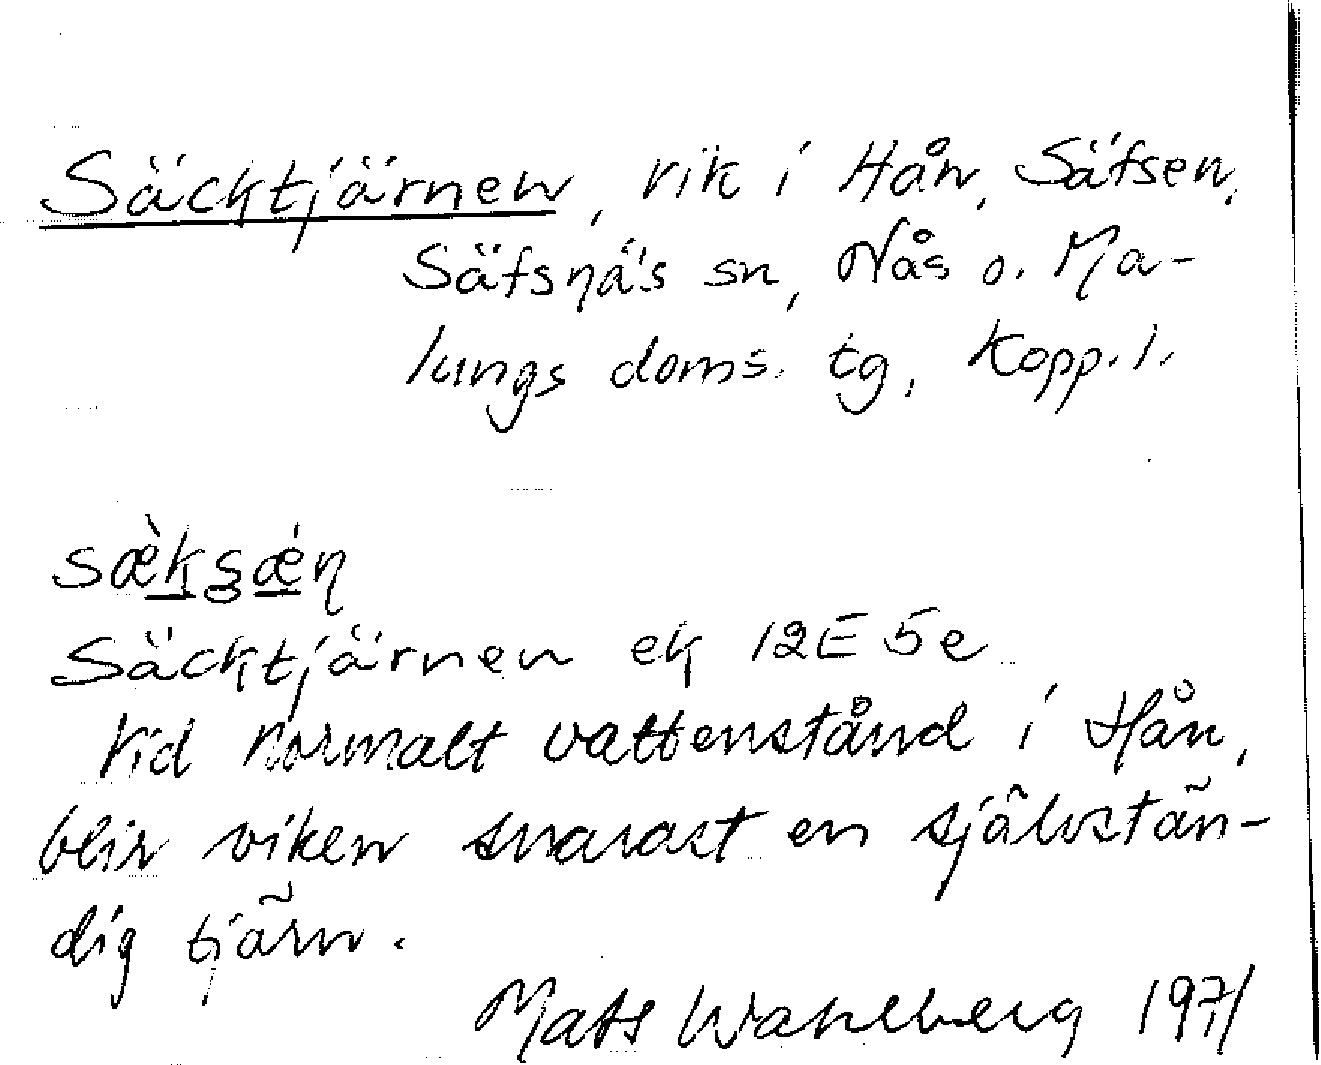 Säcktjärnen, vik i Hån, Säfsen,
Säfsnäs sn, Nås o. Ma-
lungs doms. tg, Kopp. l.
sæ̀ksǽn
Säcktjärnen ek 12E 5e
Vid normalt vattenstånd i Hån,
blir viken snarast en självstän-
dig tjärn.
Mats Wahlberg 1971